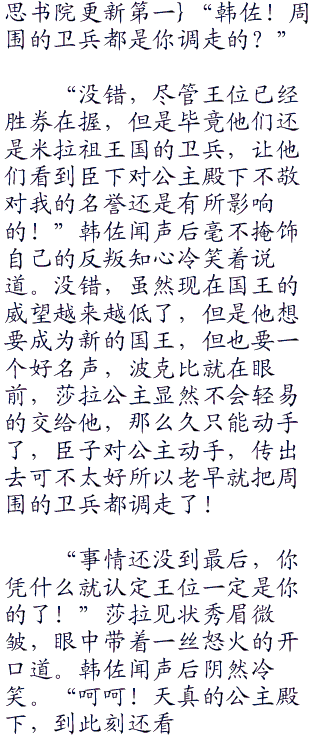 思书院更新第一}“韩佐！周
围的卫兵都是你调走的？”
“没错，尽管王位已经
胜券在握，但是毕竟他们还
是米拉祖王国的卫兵，让他
们看到臣下对公主殿下不敬
对我的名誉还是有所影响
的！”韩佐闻声后毫不掩饰
自己的反叛知心冷笑着说
道。没错，虽然现在国王的
威望越来越低了，但是他想
要成为新的国王，但也要一
个好名声，波克比就在眼
前，莎拉公主显然不会轻易
的交给他，那么久只能动手
了，臣子对公主动手，传出
去可不太好所以老早就把周
围的卫兵都调走了！
“事情还没到最后，你
凭什么就认定王位一定是你
的了！”莎拉见状秀眉微
皱，眼中带着一丝怒火的开
口道。韩佐闻声后阴然冷
笑。“呵呵！天真的公主殿
下，到此刻还看